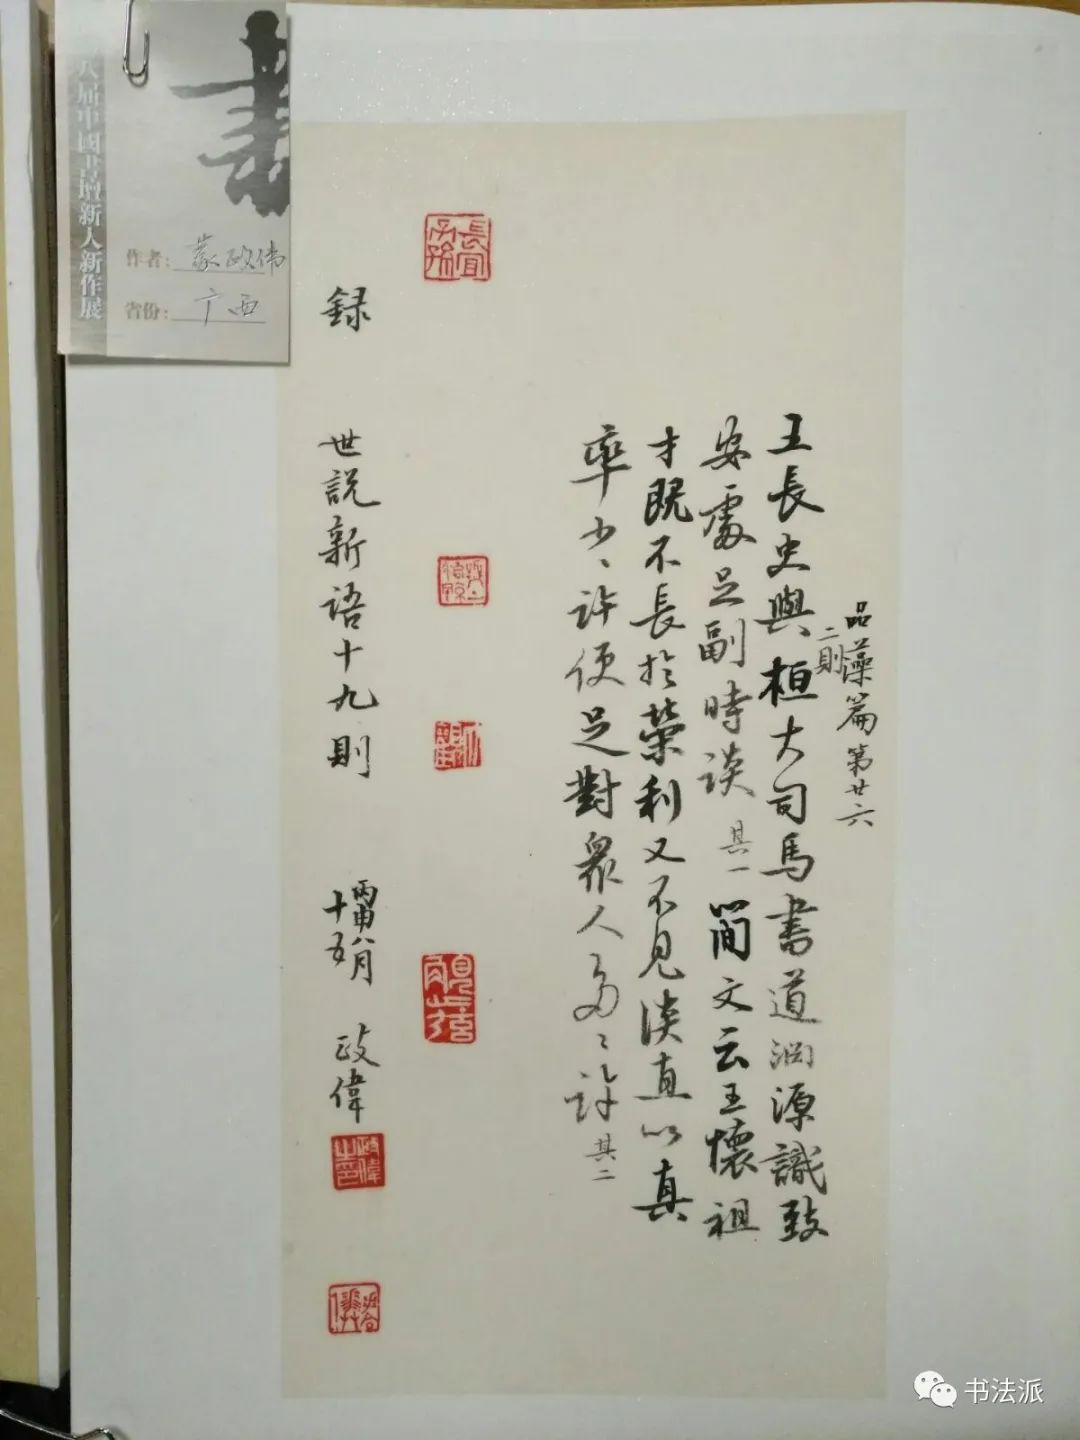 八届中國書壇新人新作展
作者：蒙政伟
省份：广西
品藻篇第廿六
二則
王長史與桓大司馬書道淵源識致
安處足副時談 其一 簡文云王懷祖
才既不長於榮利又不見淡直以真
率少々許便足對眾人多々許 其二
長宜子孫
録 世説新語十九則 丙申八月十五 政偉
政偉之印
书法派